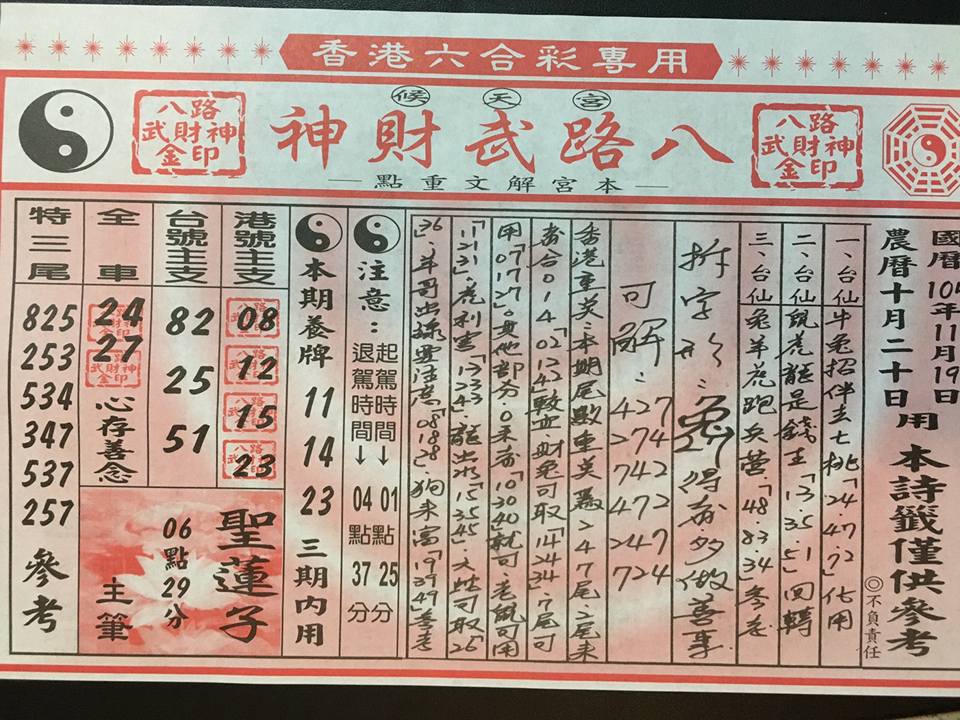 香港六合彩專用
候天宮
八路武財神
八路武財神金印
八路武財神金印
本宮解文重點
國曆105年11月19日
農曆十月二十日用
本詩籤僅供參考
◎不負責任
一、台仙牛兔招伴去七桃「24.47.72」仿用
二、台仙鼠虎龍是錢主「13.35.51」回轉
三、台仙兔羊虎跑兵營「48.83.34」參考
拆字形:兔27得前多做善事
可解:427
274
742
472
247
724
香港重英:本期尾數重英為2 4 7尾:2尾來
當合014「02.12.42」較正.財兔可取「14.24.34」7尾可
用「07.17.27」
「10.30.40」就可
「11.21.31」虎利害「13.23.43」龍出水「15.35.45」
36.羊哥出綠要注意「08.18.28」狗來富「19.39.49」參考
注意:
起駕時間↓01點25分
退駕時間↓04點37分
本期養牌 11 14 23 三期內用
港號主支
08
12
15
23
台號主支
82
25
51
全車
24
27
心存善念
特三尾
825
253
534
347
537
257
參考
聖蓮子
06點29分
主筆